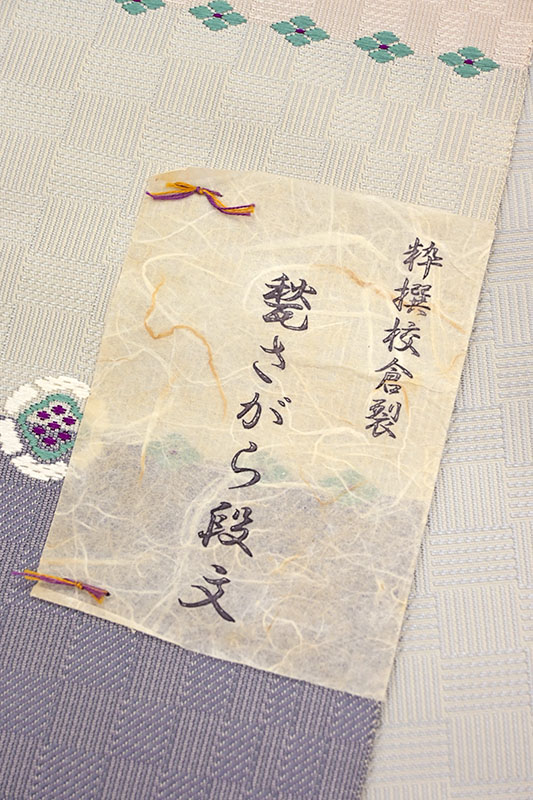 粋撰校倉裂
甃さがら段文